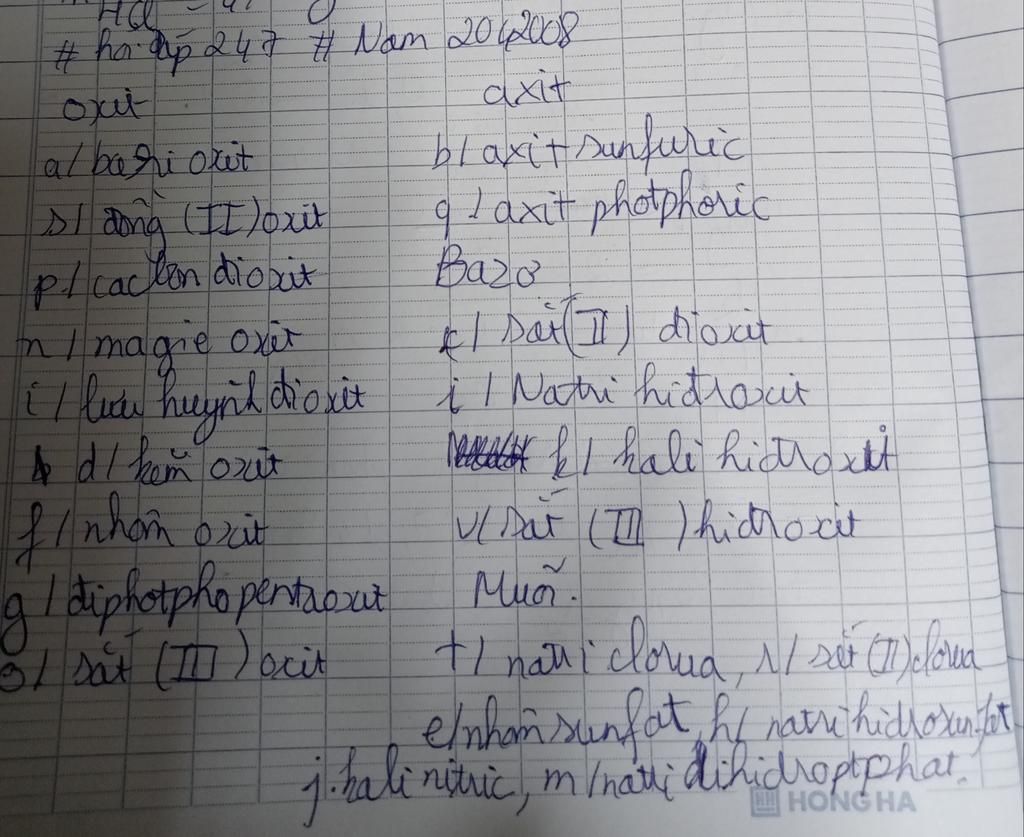 HCl
# hỏi đáp 247 # Nam 2042008
oxit axit
a/ bari oxit b/ axit sunfuric
s/ đồng (II) oxit q/ axit photphoric
p/ cacbon dioxit Bazơ
n/ magie oxit c/ Sắt (II) dioxit
i/ lưu huỳnh dioxit i/ Natri hidroxit
d/ kẽm oxit k/ kali hidroxit
f/ nhôm oxit v/ Sắt (III) hidroxit
g/ diphotpho pentaoxit Muối.
o/ Sắt (III) oxit t/ natri clorua, r/ sắt (II) clorua
e/ nhôm sunfat, h/ natri hidrosunfat
j. kali nitric, m/ natri dihidroptphat.
HH HONG HA